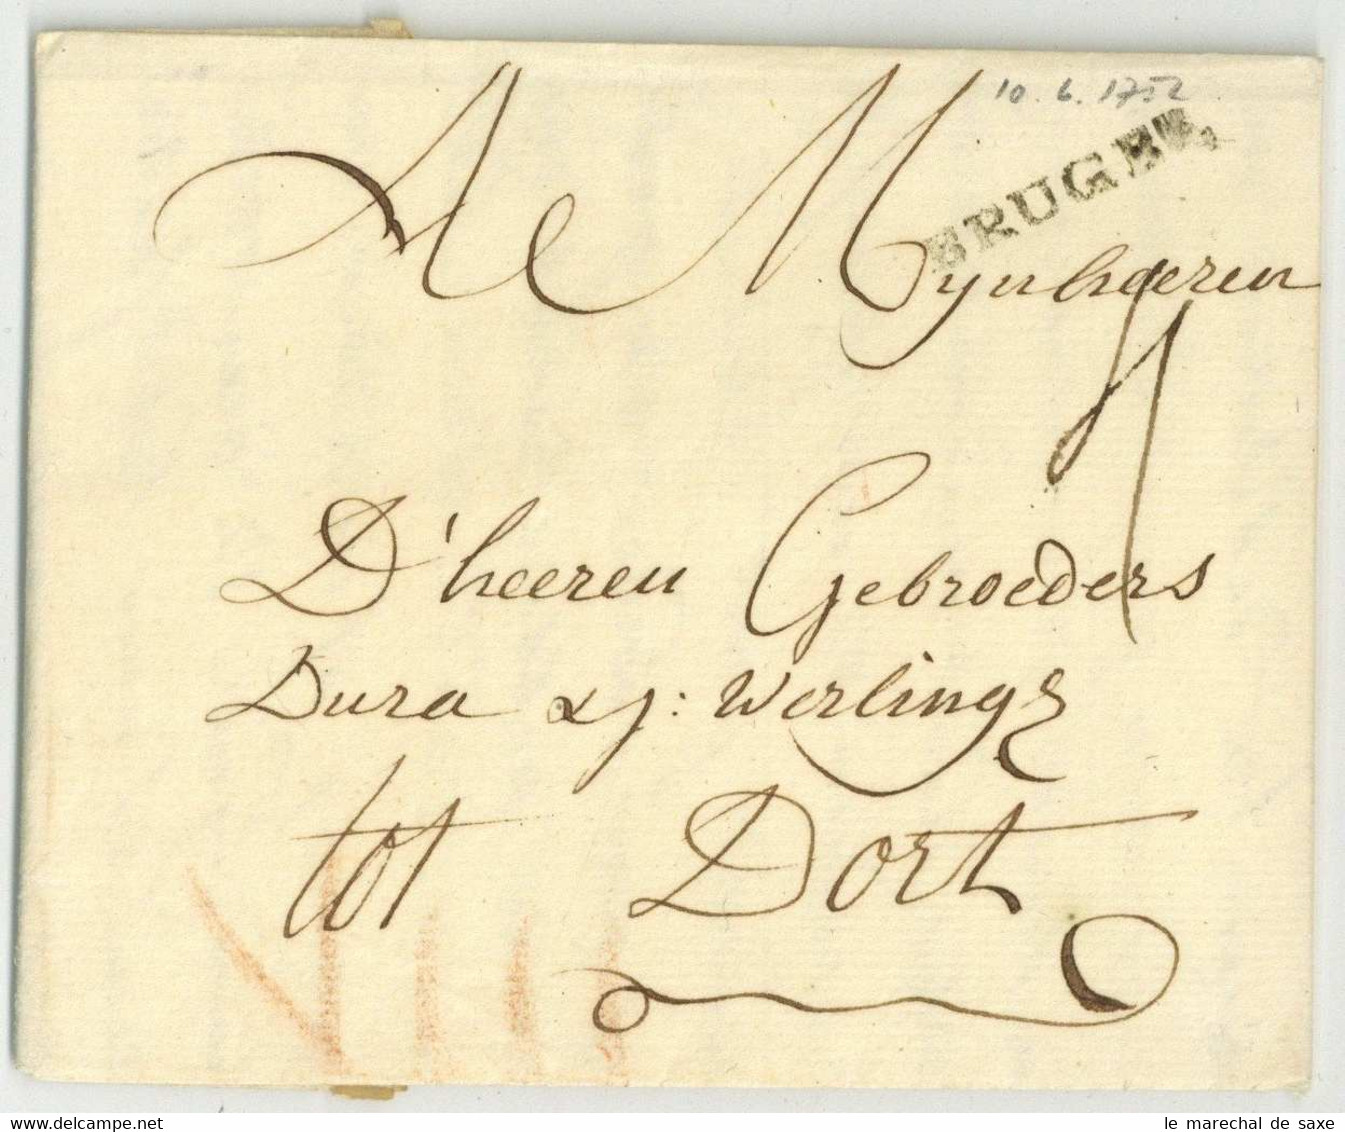 10.6.1752
BRUGES
A Mynheeren
D'heeren Gebroeders
Dura & J: Werlings
tot Dort
le marechal de saxe